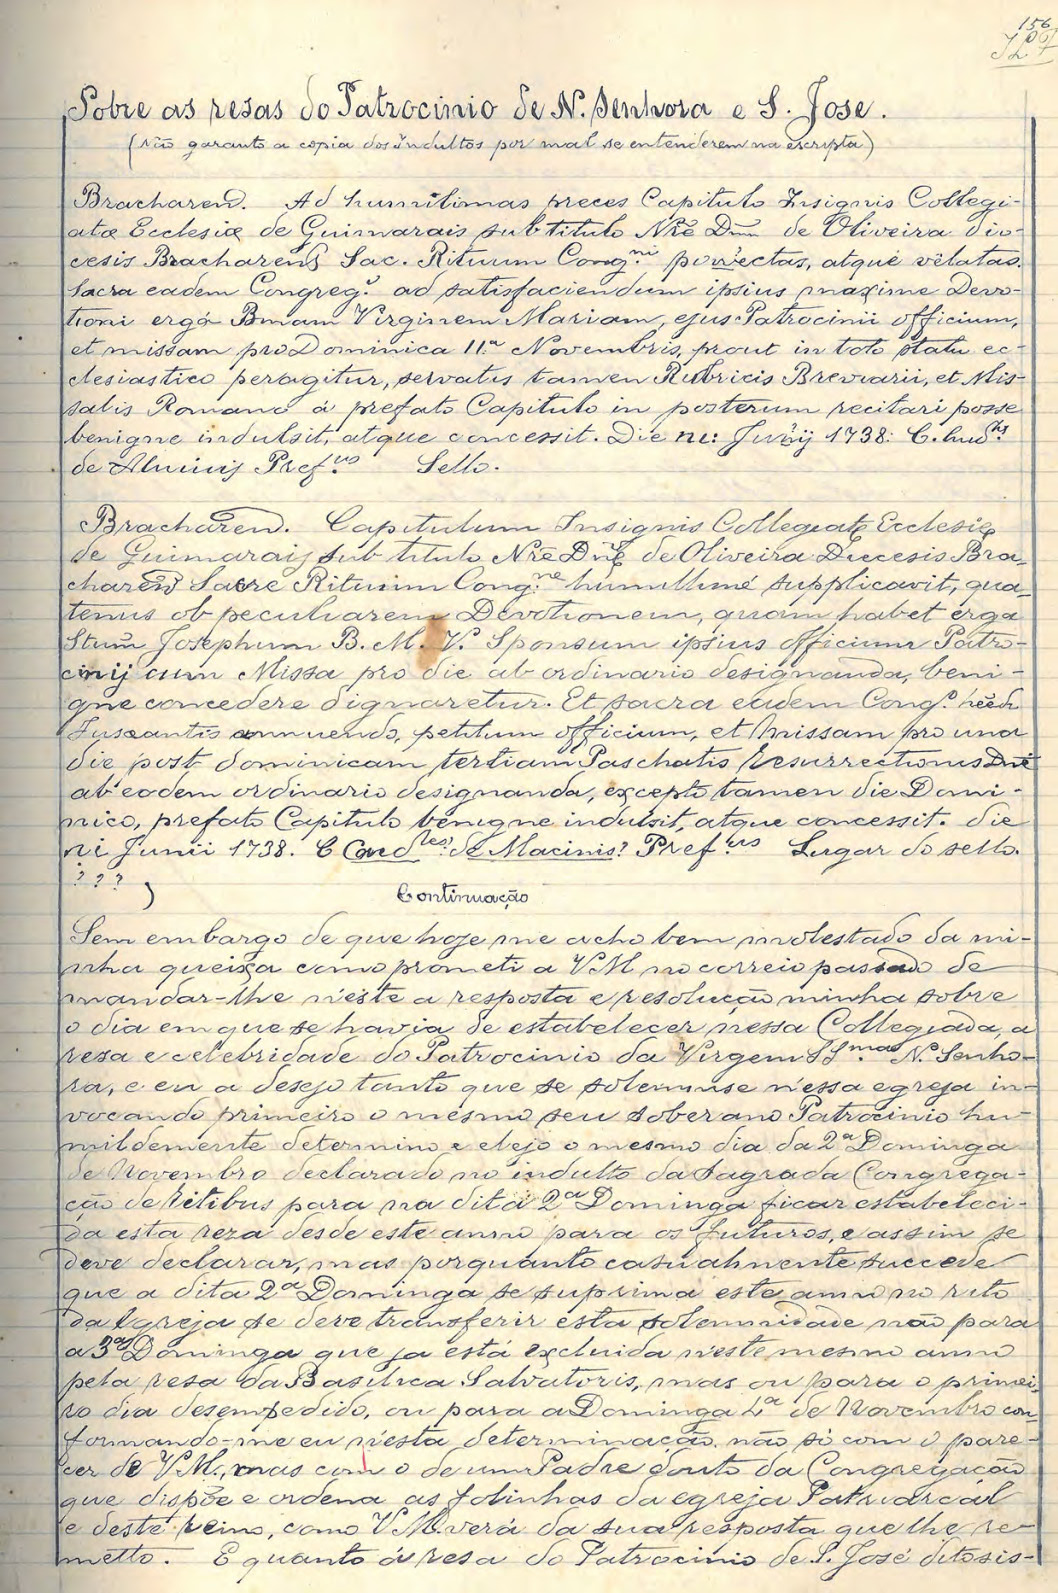 156
Sobre as resas do Patrocinio de N. Senhora e S. Jose.
(Não garanto a copia dos indultos por mal se entenderem na escripta)
Bracharen. Ad humilimas preces Capitulo Insignis Collegi-
atæ Ecclesiæ de Guimarais sub titulo Nrē Dnē de Oliveira dio-
cesis Bracharens Sac. Rituum Cong.ni porrectas, atque vêlatas.
Sacra eadem Congreg.o ad satisfaciendum ipsius maxime Devo-
tioni ergá Bmam Virginem Mariam, ejus Patrocinii officium,
et missam pro Dominica 11.a Novembris, prout in toto statu ec-
clesiastico peragitur, servatis tamen Rubricis Breviarii, et Mis-
salis Romano á prefato Capitulo in posterum recitari posse
benigne indulsit, atque concessit. Die Junij 1738.
de Pref.us Sello.
Bracharen. Capitulum Insignis Collegiatę Ecclesię
de Guimarais sub titulo Nrē Dnē de Oliveira Diecesis Bra-
charens Sacre Rituum Cong.ne humillimé supplicavit, qua-
tenus ob peculiarem Devotionem, quam habet erga
Stum Josephum B. M. V. Sponsum ipsius officium Patro-
cinij cum Missa pro die ab ordinario designanda, beni-
gne concedere dignaretur. Et sacra eadem Cong.o
annuendo, petitum officium, et Missam pro una
die post dominicam tertiam Paschatis Resurrectionis Dnē
ab eodem ordinario designanda, excepto tamen die Domi-
nico, prefato Capitulo benigne indulsit, atque concessit. die
ni Junii 1738. C Card.les de Macinis? Pref.us Lugar do sello.
? ? ? )
Continuação
Sem embargo de que hoje me acho bem molestado da mi-
nha queixa como prometi a VM no correio passado de
mandar-lhe n'éste a resposta e resolução minha sobre
o dia em que se havia de estabelecer nessa Collegiada, a
resa e celebridade do Patrocinio da Virgem SS.mas N. Senho-
ra, e eu a desejo tanto que se solemnise n'essa egreja in-
vocando primeiro o mesmo seu soberano Patrocinio hu-
mildemente determino e elejo o mesmo dia da 2.a Dominga
de Novembro declarado no indulto da Sagrada Congrega-
ção de Ritibus para na dita 2.a Dominga ficar estabeleci-
da esta reza desde este anno para os futuros, e assim se
deve declarar, mas porquanto casualmente succede
que a dita 2.a Dominga se suprima este anno no rito
da Igreja se deve transferir esta solemnidade não para
a 3.a Dominga que ja está excluida n'este mesmo anno
pela resa da Basilica Salvatoris, mas ou para o primei-
ro dia desempedido, ou para a Dominga 4.a de Novembro con-
formando-me eu n'esta determinação, não só com o pare-
cer de VM., mas com o de um Padre douto da Congregação
que dispõe e ordena as folinhas da egreja Patriarcal
e deste reino, como VM verá da sua resposta que lhe re-
metto. E quanto á resa do Patrocinio de S. José ditosis-